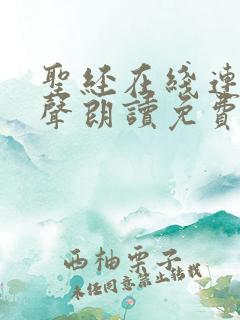 聖經在綫連
聲朗讀免費
西柚栗子
未经同意禁止转载